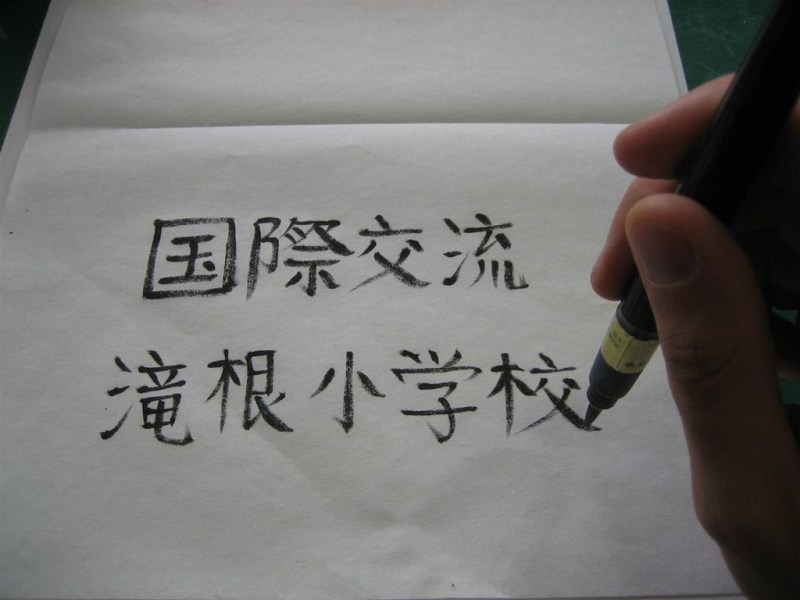 国際交流
滝根小学校